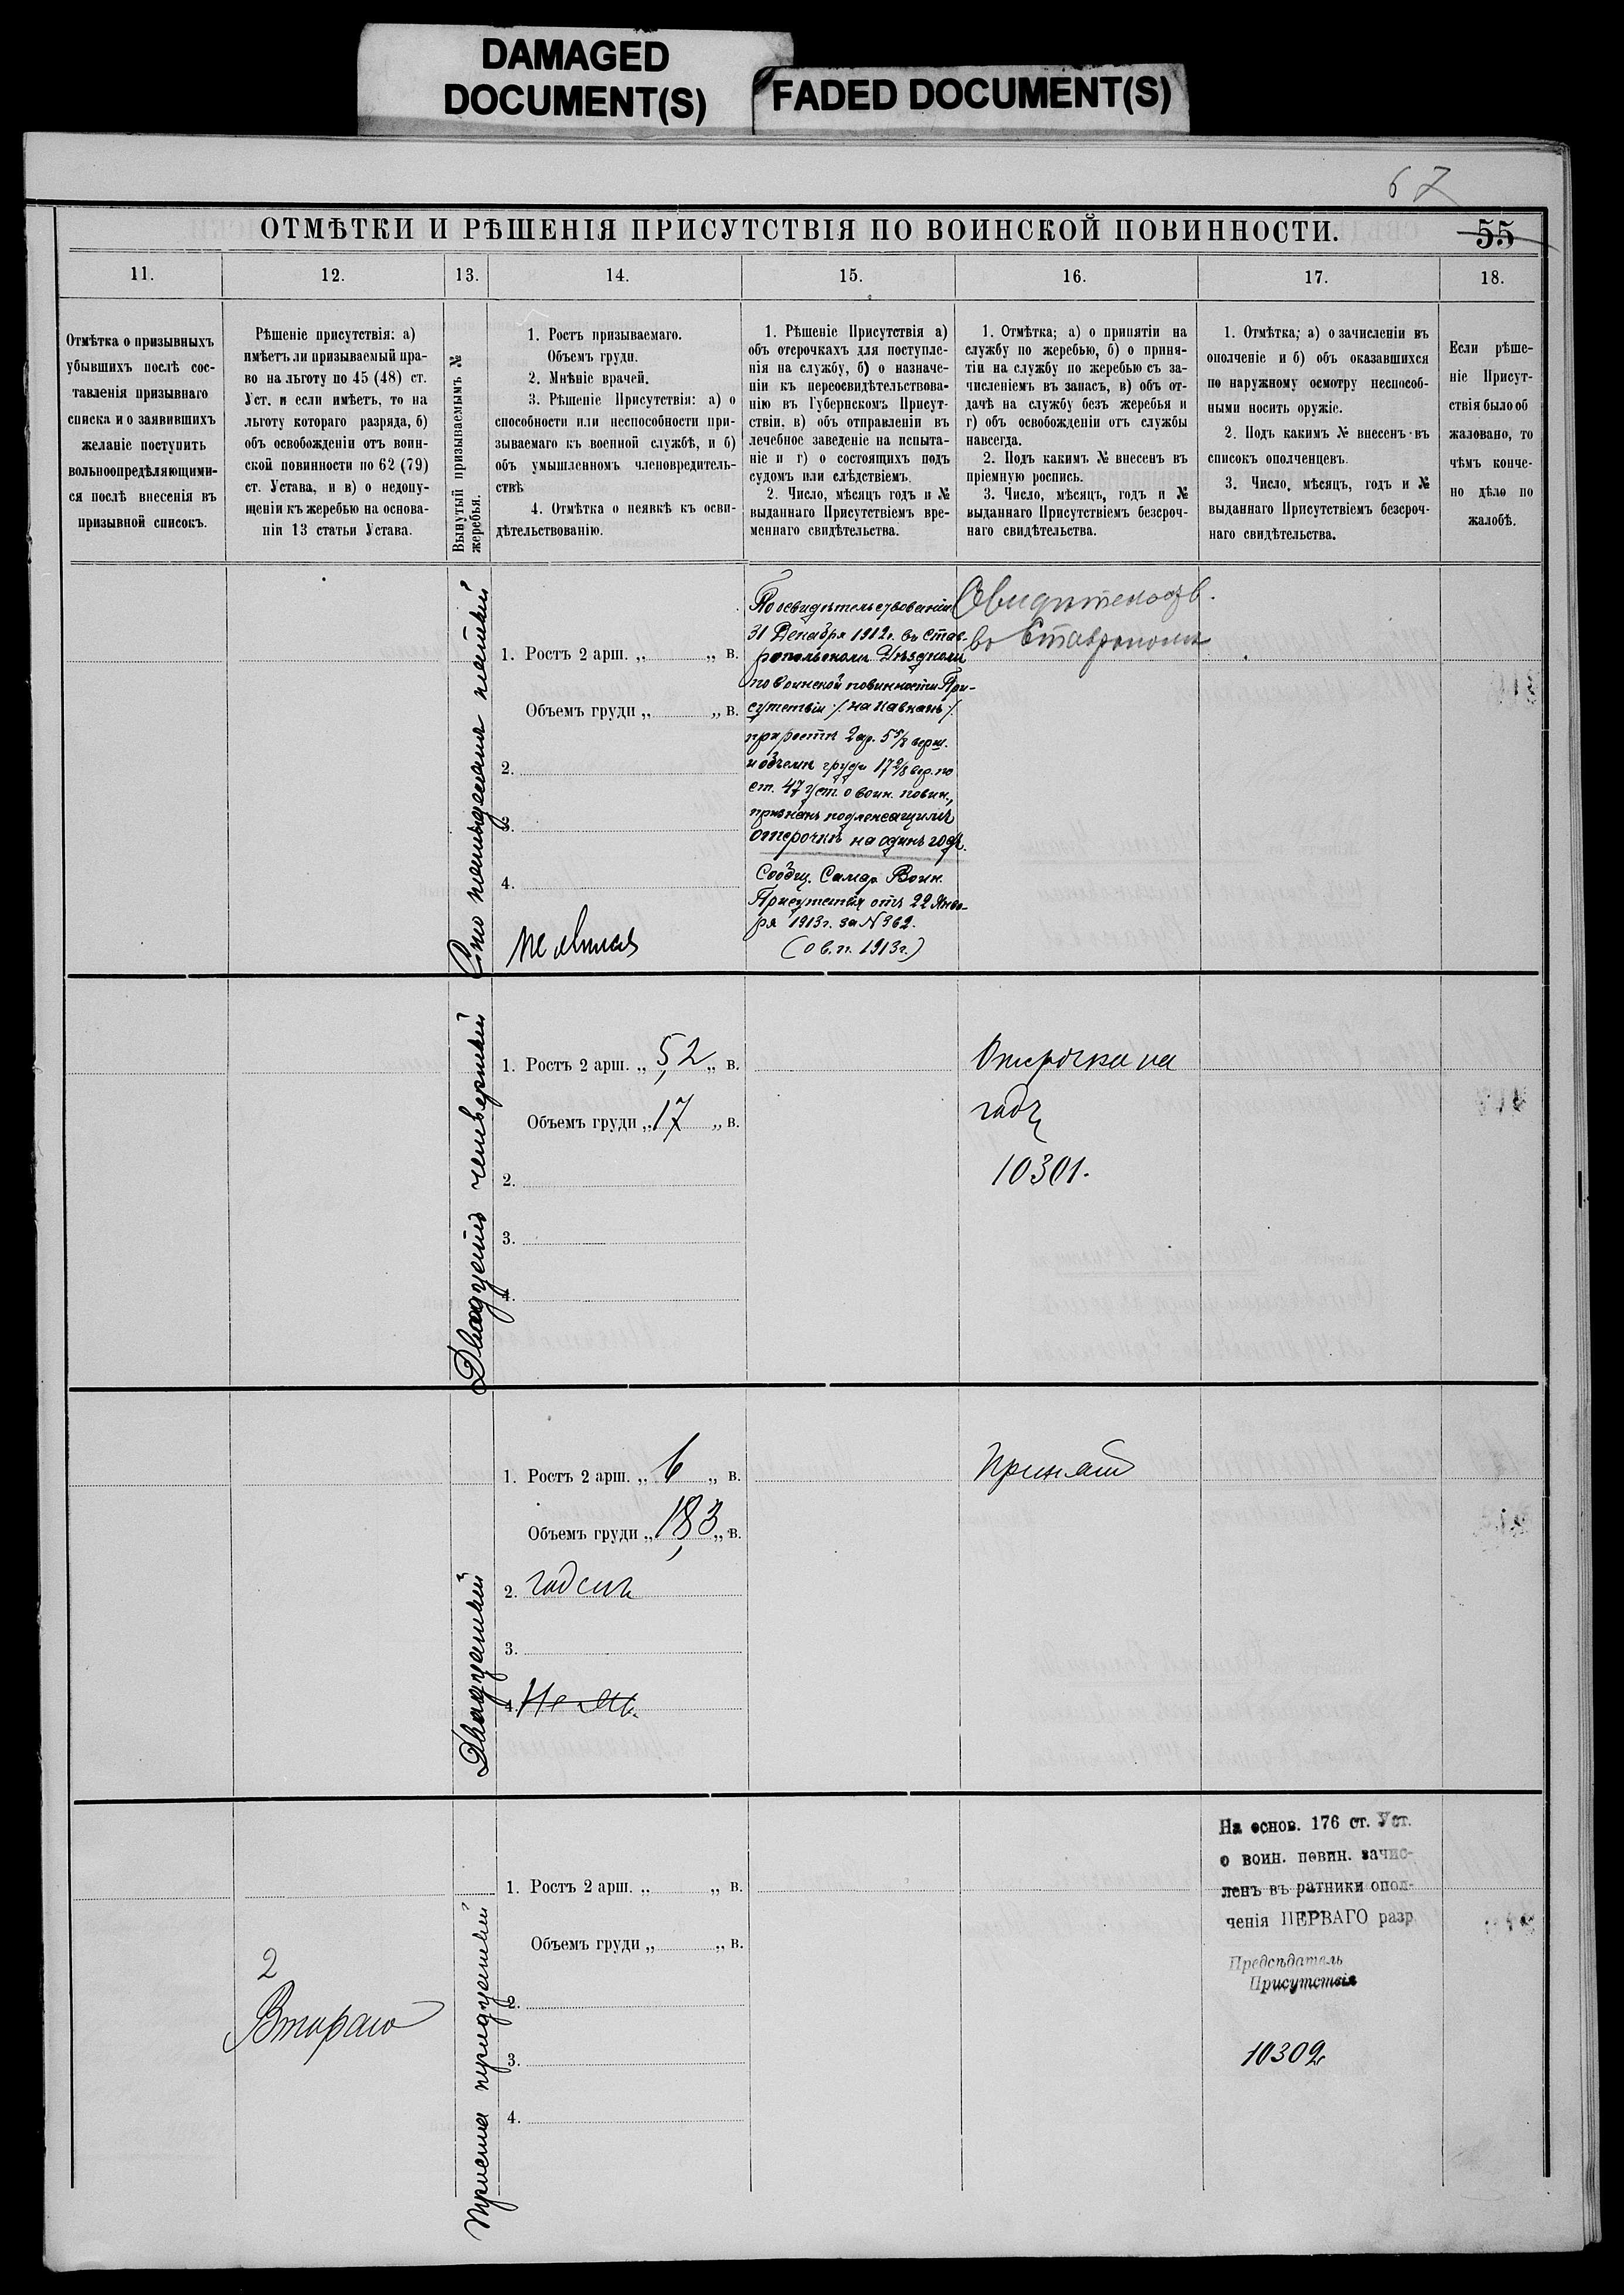 DAMAGED
DOCUMENT(S)
FADED DOCUMENT(S)
67
ОТМѢТКИ И РѢШЕНІЯ ПРИСУТСТВІЯ ПО ВОИНСКОЙ ПОВИННОСТИ.
55
11.
12.
13.
14.
15.
16.
17.
18.
Отмѣтка о призывныхъ
убывшихъ послѣ сос-
тавленія призывнаго
списка и о заявившихъ
желаніе поступить
вольноопредѣляющими-
ся послѣ внесенія въ
призывной списокъ.
Рѣшеніе присутствія: а)
имѣетъ ли призываемый пра-
во на льготу по 45 (48) ст.
Уст. и если имѣетъ, то на
льготу котораго разряда, б)
объ освобожденіи отъ воин-
ской повинности по 62 (79)
ст. Устава, и в) о недопу-
щеніи къ жеребью на основа-
ніи 13 статьи Устава.
Вынутый призываемымъ №
жеребья.
1. Ростъ призываемаго.
Объемъ груди.
2. Мнѣніе врачей.
3. Рѣшеніе Присутствія: а) о
способности или неспособности при-
зываемаго къ военной службѣ, и б)
объ умышленномъ членовредитель-
ствѣ
4. Отмѣтка о неявкѣ къ осви-
дѣтельствованію.
1. Рѣшеніе Присутствія а)
объ отсрочкахъ для поступле-
нія на службу, б) о назначе-
ніи къ переосвидѣтельствова-
нію въ Губернскомъ Присут-
ствіи, в) объ отправленіи въ
лечебное заведеніе на испыта-
ніе и г) о состоящихъ подъ
судомъ или слѣдствіемъ.
2. Число, мѣсяцъ годъ и №
выданнаго Присутствіемъ вре-
меннаго свидѣтельства.
1. Отмѣтка; а) о принятіи на
службу по жеребью, б) о приня-
тіи на службу по жеребью съ за-
численіемъ въ запасъ, в) объ от-
дачѣ на службу безъ жеребья и
г) объ освобожденіи отъ службы
навсегда.
2. Подъ какимъ № внесенъ въ
пріемную роспись.
3. Число, мѣсяцъ, годъ и №
выданнаго Присутствіемъ безсроч-
наго свидѣтельства.
1. Отмѣтка; а) о зачисленіи въ
ополченіе и б) объ оказавшихся
по наружному осмотру неспособ-
ными носить оружіе.
2. Подъ какимъ № внесенъ въ
списокъ ополченцевъ.
3. Число, мѣсяцъ, годъ и №
выданнаго Присутствіемъ безсроч-
наго свидѣтельства.
Если рѣше-
ніе Присут-
ствія было об
жаловано, то
чѣмъ конче-
но дѣло по
жалобѣ.
Сто пятьдесятъ пятый
1. Ростъ 2 арш. „ „ в.
Объемъ груди „ „ в.
2.
3.
4.
не явился
По освидѣтельствованіи
31 Декабря 1912 г. въ Став-
ропольскомъ Уѣздномъ
по воинской повинности При-
сутствіи /на Кавказѣ/.
при ростѣ 2 ар. 5 5/8 верш.
и объемѣ груди 17 2/8 вер. по
ст. 47 Уст. о воин. повин.,
признанъ подлежащимъ
отсрочкѣ на одинъ годъ.
Сообщ. Самар. Воин.
Присутствія отъ 22 Янва-
ря 1913 г. за N 362.
(о в. п. 1913 г.)
Свидѣтельств.
въ Ставрополѣ
Двадцать четвертый
1. Ростъ 2 арш. „ 5,2 „ в.
Объемъ груди „ 17 „ в.
2.
3.
4.
Отсрочка на
годъ
10301.
Двадцатый
1. Ростъ 2 арш. „ 6 „ в.
Объемъ груди „ 18,3 „ в.
2. годенъ
3.
4. Не яв.
Принятъ
2
Второго
Триста тридцатый
1. Ростъ 2 арш. „ „ в.
Объемъ груди „ „ в.
2.
3.
4.
На основ. 176 ст. Уст.
о воин. повин. зачис-
ленъ въ ратники опол-
ченія ПЕРВАГО разр.
Предсѣдатель
Присутствія
10302